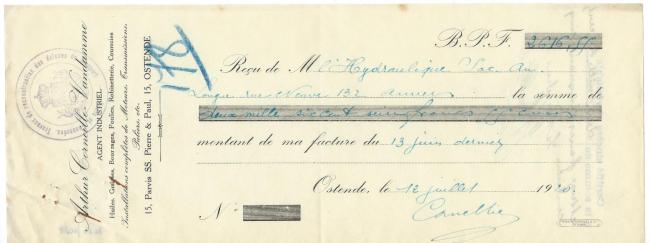 Arthur Corneille Vandamme
AGENT INDUSTRIEL
Huiles, Graisses, Bourrages, Poulies, Robinetterie, Courroies
Installations complètes de Moteurs, Transmissions,
Paliers, etc.
15, Parvis SS. Pierre & Paul, 15, OSTENDE
178
B.P.F. 2616,55
Reçu de M l'Hydraulique Soc. An.
Longue rue Neuve 132 Anvers la somme de
deux mille six cent seize francs
montant de ma facture du 13 juin dernier
Ostende, le 12 juillet 1920.
N°